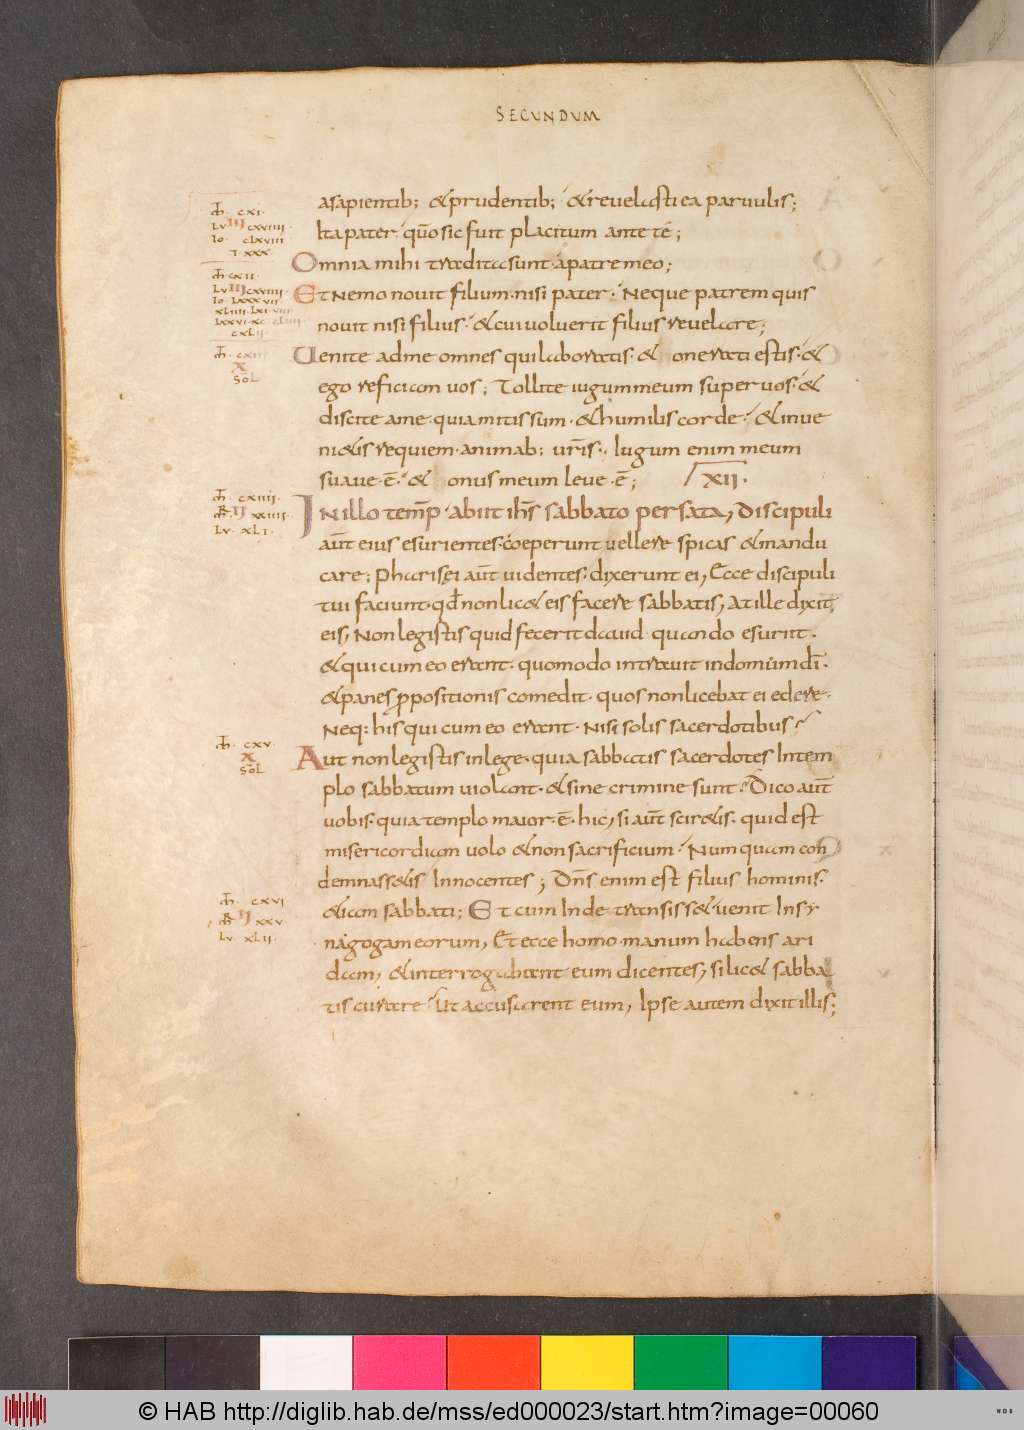 SECUNDUM
asapientib; & prudentib; & revelasti ea parvulis;
Ita pater quō sic fuit placitum ante té;
Omnia mihi tradita sunt· apatre meo;
Et Nemo novit filium· nisi pater· Neque patrem quis
novit nisi filius· & cui voluerit filius revelare;
Uenite adme omnes qui laboratis· & onerati estis· &
ego reficiam vos; Tollite iugum meum super vos· &
discite ame· quia mitis sum· & humilis corde· & inve
ni&is requiem· animab; vr̄is· Iugum enim meum
suave· ē· & onus meum leve· ē; XII·
IN illo tem̄p· abiit ih̄s sabbato per sata, Discipuli
aūt eius esurientes· coeperunt vellere spicas & mandu
care; Pharisei aūt videntes· dixerunt ei, Ecce discipuli
tui faciunt· qđ non lic& eis facere sabbatis, At ille dixit
eis, Non legistis quid fecerit david quando esuriit·
& qui cum eo erant· quomodo intravit in domum dī·
& panes ꝓpositionis comedit· quos non licebat ei edere·
Neq: his qui cum eo erant· Nisi solis sacerdotibus?
Aut non legistis in lege· quia sabbatis sacerdotes Intem
plo sabbatum violant· & sine crimine sunt· Dico aūt
vobis· quia templo maior· ē· hic, si aūt scir&is· quid est
misericordiam volo & non sacrificium· Numquam con
demnass&is Innocentes; Dn̄s enim est filius hominis·
&iam sabbati; Et cum Inde transiss& venit Insy
nagogam eorum, Et ecce homo manum habens ari
dam, & interrogabant eum dicentes, si lic& sabba
tis curare· Ut accusarent eum, Ipse autem dixit illis;
CXI·
LV III CXVIIII·
IO· CLXVIII
CXII·
LV III CXVIIII
IO· LXXXVII
CXIII
X
SOL
CXIIII·
II XXIIII
LV· XLI·
CXV·
X
SOL
CXVI
II XXV
LV· XLII·
© HAB http://diglib.hab.de/mss/ed000023/start.htm?image=00060
WDB